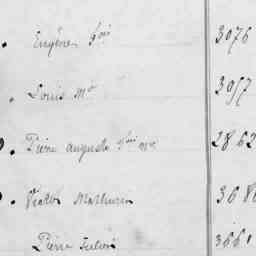 Eugène fois 3076
Louis Mie 3057
Pierre auguste fois Mie 2862
Victor Mathurin 368
Pierre Julien 3661